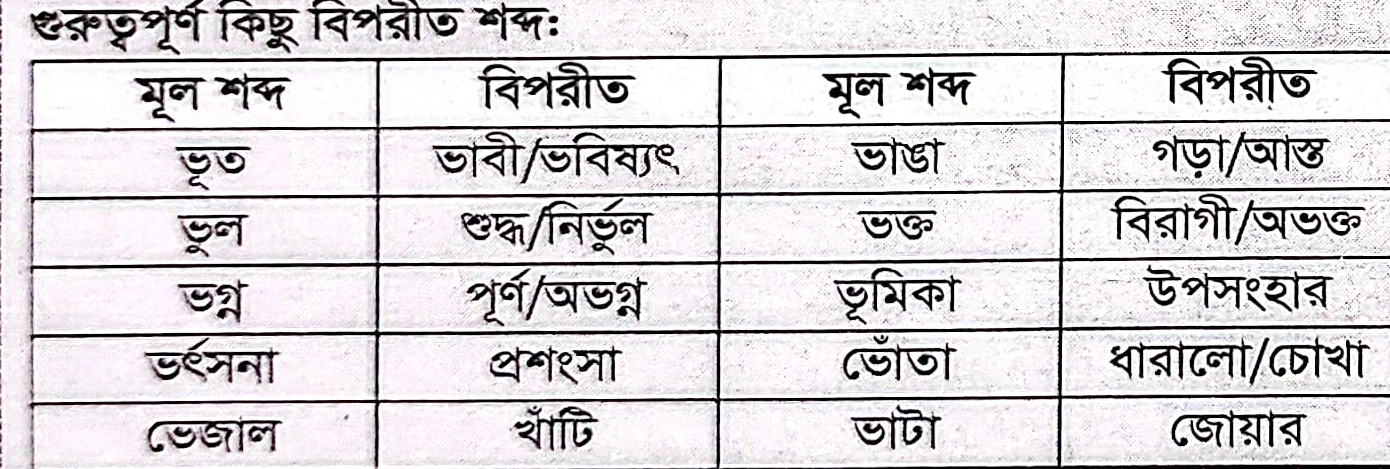 গুরুত্বপূর্ণ কিছু বিপরীত শব্দ:
মূল শব্দ বিপরীত মূল শব্দ বিপরীত
ভূত ভাবী/ভবিষ্যৎ ভাঙা গড়া/আস্ত
ভুল শুদ্ধ/নির্ভুল ভক্ত বিরাগী/অভক্ত
ভগ্ন পূর্ণ/অভগ্ন ভূমিকা উপসংহার
ভর্ৎসনা প্রশংসা ভোঁতা ধারালো/চোখা
ভেজাল খাঁটি ভাটা জোয়ার